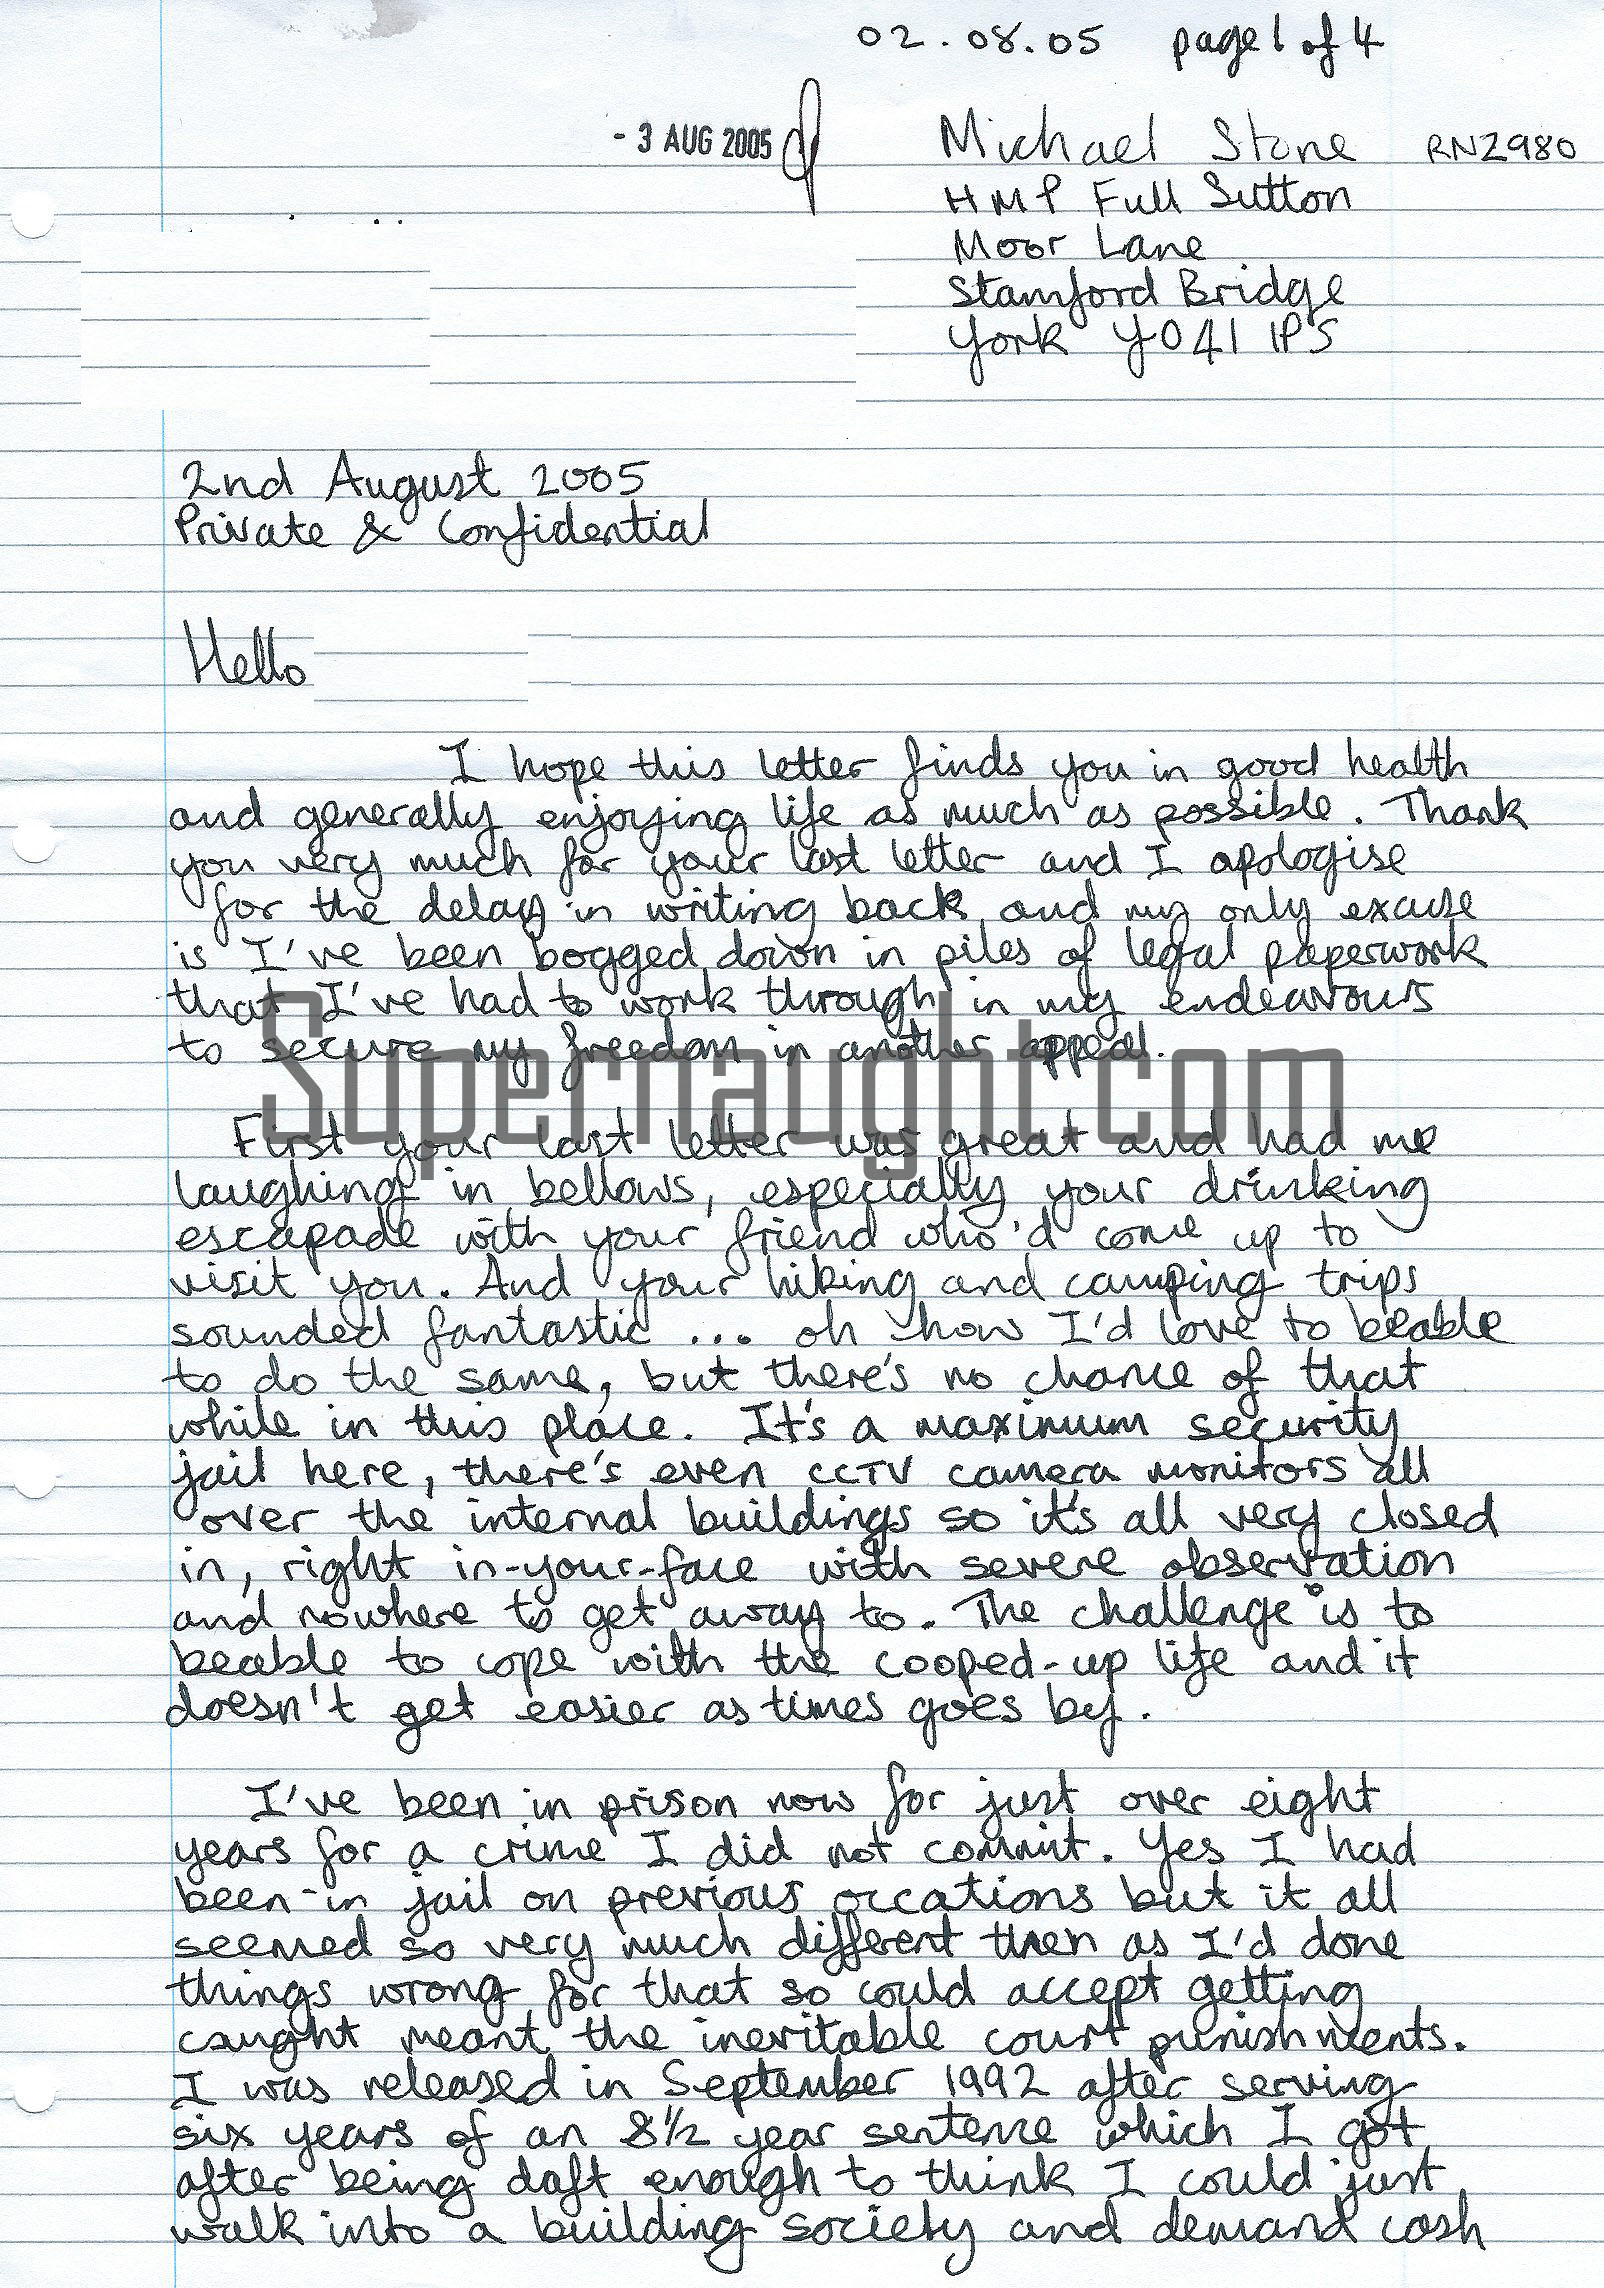 02.08.05 page 1 of 4
- 3 AUG 2005
Michael Stone RN2980
HMP Full Sutton
Moor Lane
Stamford Bridge
York YO41 1PS
2nd August 2005
Private & Confidential
Hello
I hope this letter finds you in good health
and generally enjoying life as much as possible. Thank
you very much for your last letter and I apologise
for the delay in writing back and my only excuse
is I've been bogged down in piles of legal paperwork
that I've had to work through in my endeavours
to secure my freedom in another appeal.
Supernaught.com
First your last letter was great and had me
laughing in bellows, especially your drinking
escapade with your friend who'd come up to
visit you. And your hiking and camping trips
sounded fantastic ... oh how I'd love to beable
to do the same, but there's no chance of that
while in this place. It's a maximum security
jail here, there's even CCTV camera monitors all
over the internal buildings so it's all very closed
in, right in-your-face with severe observation
and nowhere to get away to. The challenge is to
beable to cope with the cooped-up life and it
doesn't get easier as times goes by.
I've been in prison now for just over eight
years for a crime I did not commit. Yes I had
been in jail on previous occations but it all
seemed so very much different then as I'd done
things wrong for that so could accept getting
caught meant the inevitable court punishments.
I was released in September 1992 after serving
six years of an 8½ year sentence which I got
after being daft enough to think I could just
walk into a building society and demand cash